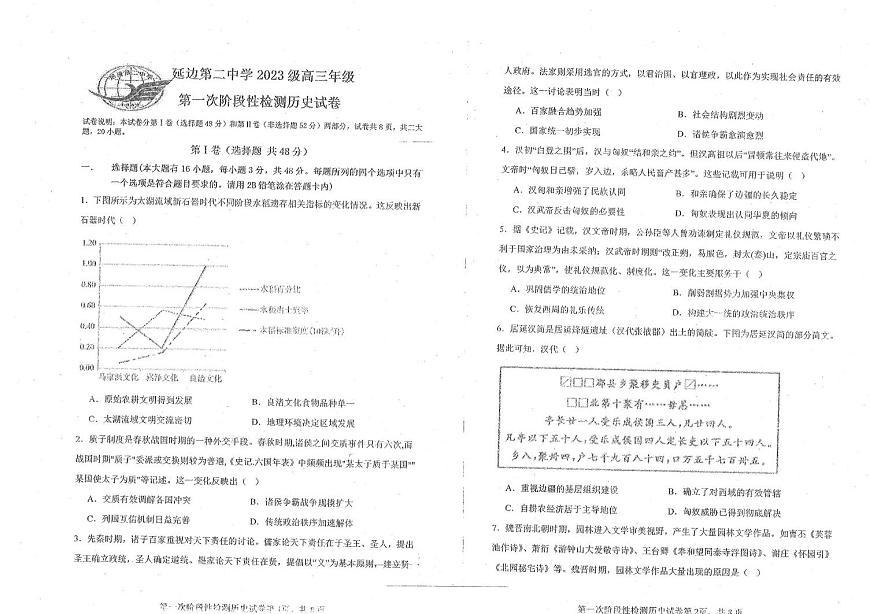 延边第二中学 2023 级高三年级
第一次阶段性检测历史试卷
试卷说明：本试卷分第Ⅰ卷（选择题 48 分）和第Ⅱ卷（非选择题 52 分）两部分，试卷共 8 页，共二大
题，20 小题。
第Ⅰ卷（选择题 共 48 分）
一、 选择题(本大题有 16 小题，每小题 3 分，共 48 分。每题所列的四个选项中只有
一个选项是符合题目要求的。请用 2B 铅笔涂在答题卡内)
1．下图所示为太湖流域新石器时代不同阶段水稻遗存相关指标的变化情况。这反映出新
石器时代（ ）
1.20
1.00
0.80
0.60
0.40
0.20
0.00
马家浜文化 崧泽文化 良渚文化
水稻百分比
水稻出土概率
水稻标准密度(10粒/升)
A．原始农耕文明得到发展 B．良渚文化食物品种单一
C．太湖流域文明交流密切 D．地理环境决定区域发展
2．质子制度是春秋战国时期的一种外交手段。春秋时期,诸侯之间交质事件只有六次,而
战国时期"质子"委派或交换则较为普遍,《史记.六国年表》中频频出现"某太子质于某国""
某国使太子为质"等记述。这一变化反映出（ ）
A．交质有效调解各国冲突 B．诸侯争霸战争规模扩大
C．列国互信机制日益完善 D．传统政治秩序加速解体
3．先秦时期，诸子百家重视对天下责任的讨论。儒家论天下责任在于圣王、圣人，提出
圣王确立政统，圣人确定道统。墨家论天下责任在贤，提倡以"义"为基本原则，建立贤
第一次阶段性检测历史试卷第 1页，共 8 页
人政府。法家则采用选官的方式，以君治国、以官理政，以此作为实现社会责任的有效
途径。这一讨论表明当时（ ）
A．百家融合趋势加强 B．社会结构剧烈变动
C．国家统一初步实现 D．诸侯争霸愈演愈烈
4．汉初"白登之围"后，汉与匈奴"结和亲之约"。但汉高祖以后"冒顿常往来侵盗代地"。
文帝时"匈奴日已骄，岁入边，杀略人民畜产甚多"。这些记载可用于说明（ ）
A．汉匈和亲增强了民族认同 B．和亲确保了边疆的长久稳定
C．汉武帝反击匈奴的必要性 D．匈奴表现出认同华夏的倾向
5．据《史记》记载，汉文帝时期，公孙臣等人曾劝谏制定礼仪规范，文帝以礼仪繁琐不
利于国家治理为由未采纳；汉武帝时期则"改正朔，易服色，封太(泰)山，定宗庙百官之
仪，以为典常"，使礼仪规范化、制度化。这一变化主要服务于（ ）
A．巩固儒学的统治地位 B．削弱割据势力加强中央集权
C．恢复西周的礼乐传统 D．构建大一统的政治统治秩序
6．居延汉简是居延烽燧遗址（汉代张掖郡）出上的简牍。下图为居延汉简的部分简文。
据此可知，汉代（ ）
☑□□鄣县乡聚移吏员户☑……
□□北第十聚有……毋恙……
亭长廿一人，受乐成侯国三人，凡廿四人。
凡亭以下五十人，受乐成侯国四人定长吏以下五十四人。
乡八，聚卌四，户七千九百八十四，口万五千七百卅五。
A．重视边疆的基层组织建设 B．确立了对西域的有效管辖
C．自耕农经济居于主导地位 D．匈奴威胁已得到彻底解决
7．魏晋南北朝时期，园林进入文学审美视野，产生了大量园林文学作品，如曹丕《芙蓉
池作诗》、萧衍《游钟山大爱敬寺诗》、王台卿《奉和望同泰寺浮图诗》、谢庄《怀园引》
《北园秘宅诗》等。魏晋时期，园林文学作品大量出现的原因是（ ）
第一次阶段性检测历史试卷第 2页，共 8 页